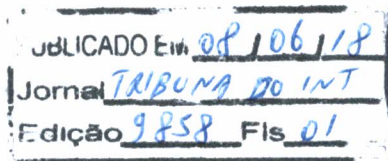 UBLICADO EM 08 / 06 / 18
Jornal TRIBUNA DO INT
Edição 9858 Fls 01